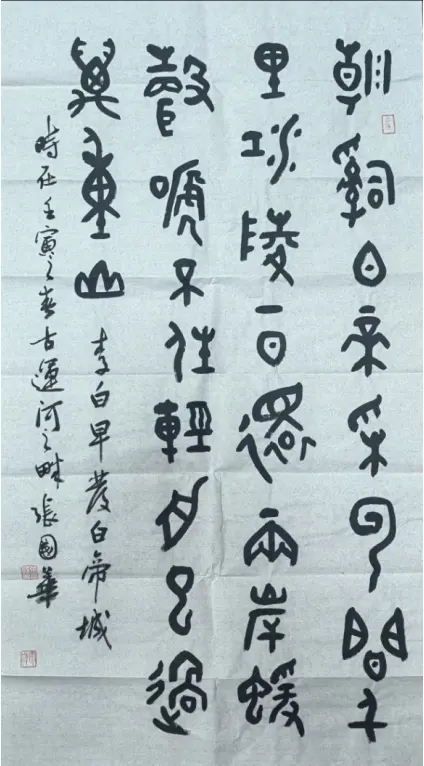 朝辭白帝采云間千
里江陵一日還兩岸蝯
聲嗁不住輕舟已過
萬重山 李白早發白帝城
時在壬寅之春古運河之畔張國華